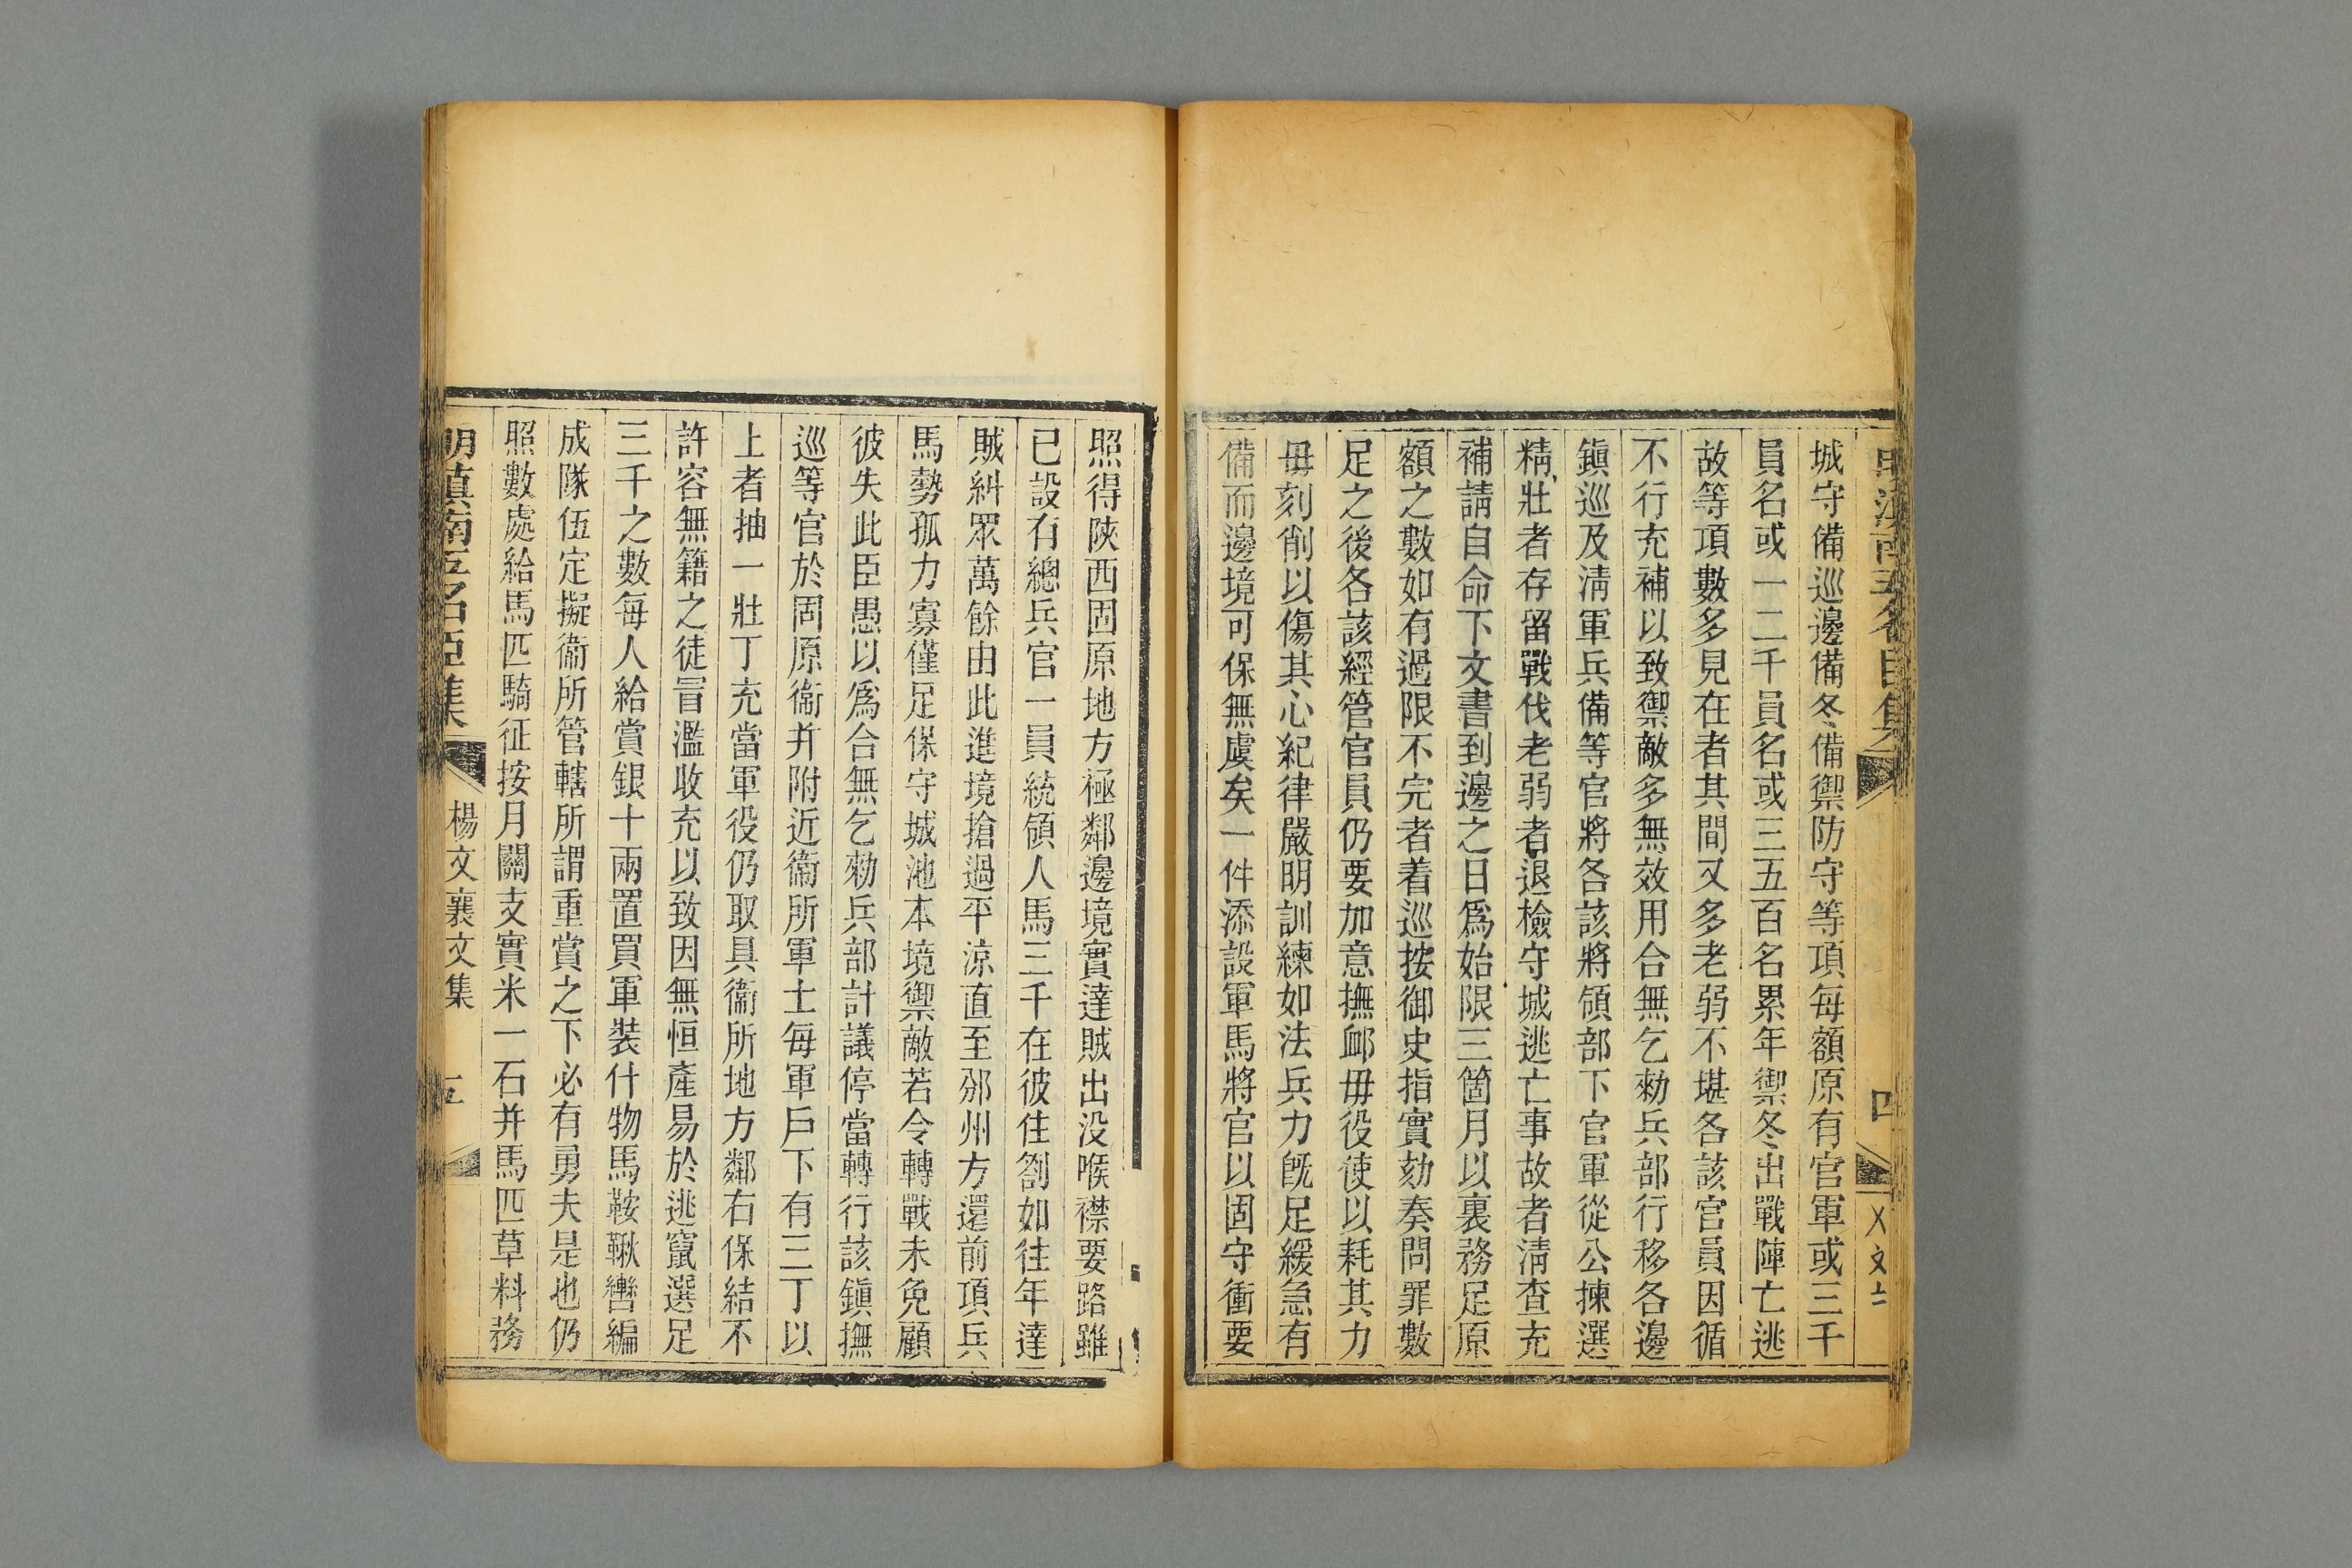 明滇南五名臣集
四
城守備巡邊備冬備禦防守等項每額原有官軍或三千
員名或一二千員名或三五百名累年禦冬出戰陣亡逃
故等項數多見在者其間又多老弱不堪各該官員因循
不行充補以致禦敵多無效用合無乞勑兵部行移各邊
鎮巡及清軍兵備等官將各該將領部下官軍從公揀選
精壯者存留戰伐老弱者退檢守城逃亡事故者清查充
補請自命下文書到邊之日爲始限三箇月以裏務足原
額之數如有過限不完者着巡按御史指實劾奏問罪數
足之後各該經管官員仍要加意撫卹毋役使以耗其力
毋刻削以傷其心紀律嚴明訓練如法兵力旣足緩急有
備而邊境可保無虞矣一件添設軍馬將官以固守衝要
照得陝西固原地方極鄰邊境實達賊出没喉襟要路雖
已設有總兵官一員統領人馬三千在彼住劄如往年達
賊糾眾萬餘由此進境搶過平涼直至邠州方還前項兵
馬勢孤力寡僅足保守城池本境禦敵若令轉戰未免顧
彼失此臣愚以爲合無乞勑兵部計議停當轉行該鎮撫
巡等官於固原衞并附近衞所軍士每軍戶下有三丁以
上者抽一壯丁充當軍役仍取具衞所地方鄰右保結不
許容無籍之徒冒濫收充以致因無恒產易於逃竄選足
三千之數每人給賞銀十兩置買軍裝什物馬鞍鞦轡編
成隊伍定擬衞所管轄所謂重賞之下必有勇夫是也仍
照數處給馬匹騎征按月關支實米一石并馬匹草料務
明滇南五名臣集
楊文襄文集
五